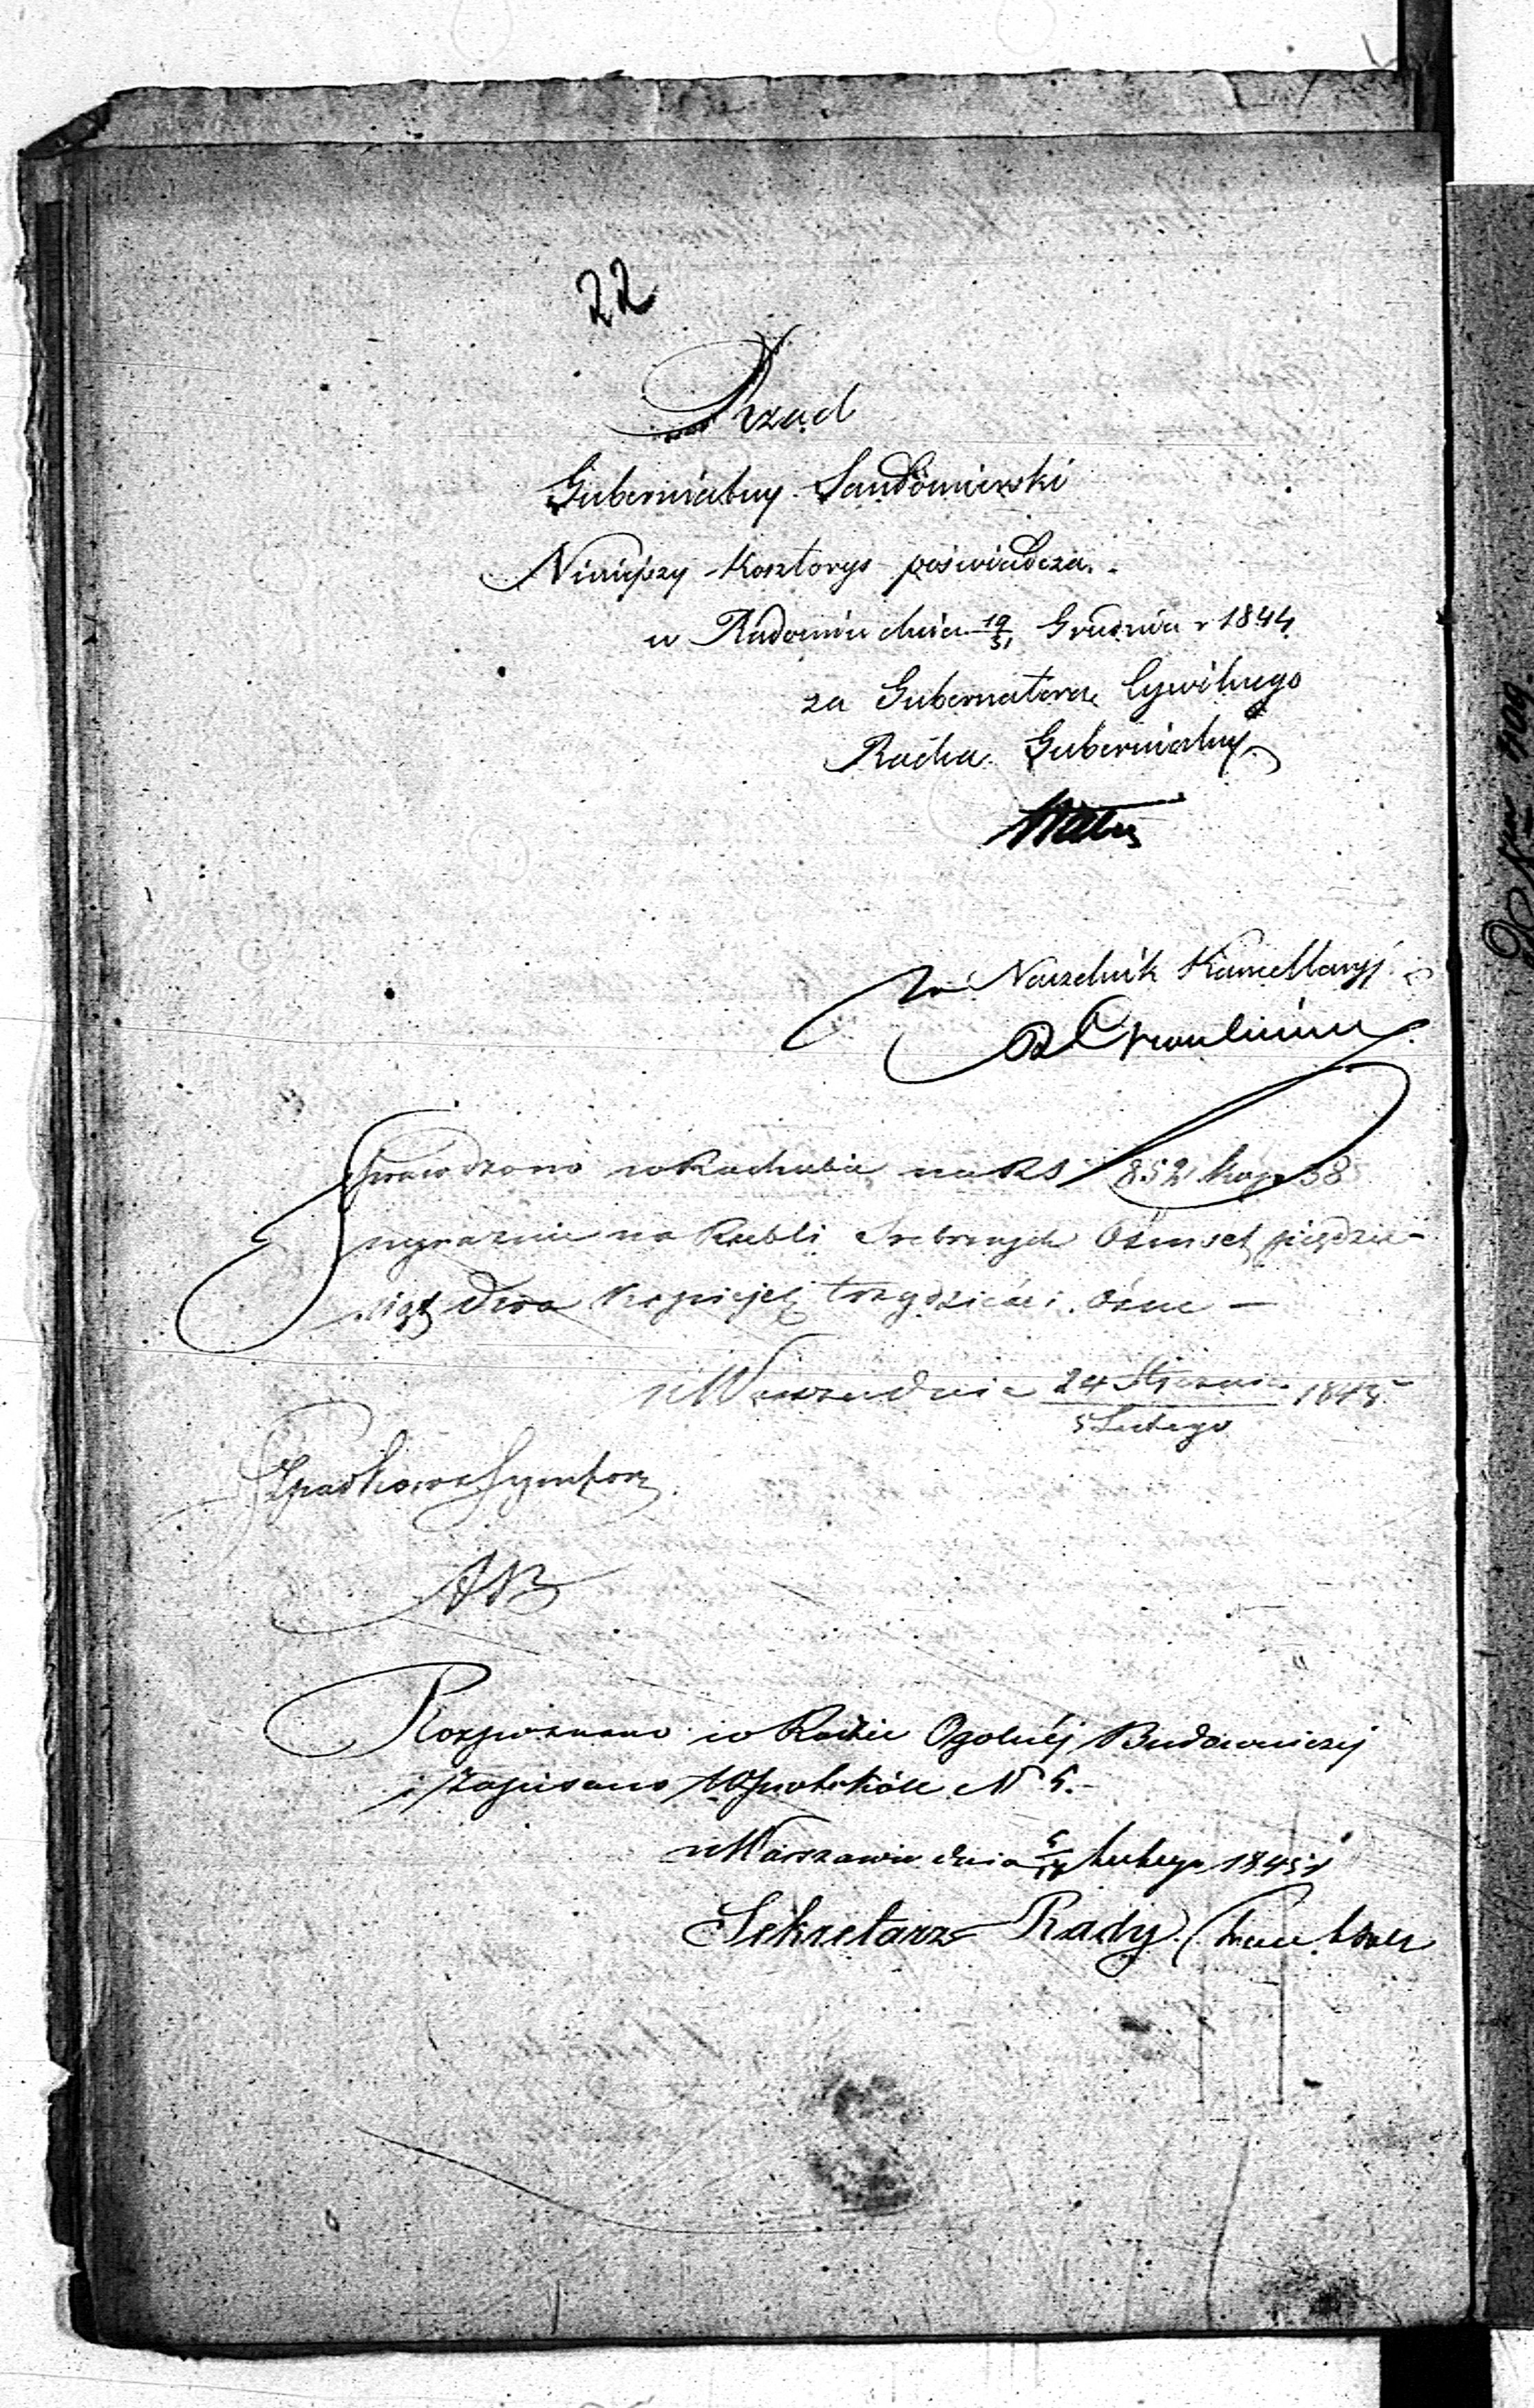 22
Rząd
Gubernialny Sandomierski
Niniejszy Kosztorys poświadcza.
w Radomiu dnia 19/31 Grudnia r 1844
za Gubernatora Cywilnego
Radca Gubernialny
Za Naczelnik Kancellaryi
Sprawdzono w Rachubie na RS 852 kop 38
wyraźnie na Rubli Srebrnych Ośmset pięćdzie-
siąt dwa kopiejek trzydzieści ośm —
w Warszawie dnia 24 Stycznia / 5 Lutego 1845
Rozpoznano w Radzie Ogólnéj Budowniczej
i zapisano w protokóle N 5.-
w Warszawie dnia Lutego 1845 r
Sekretarz Rady